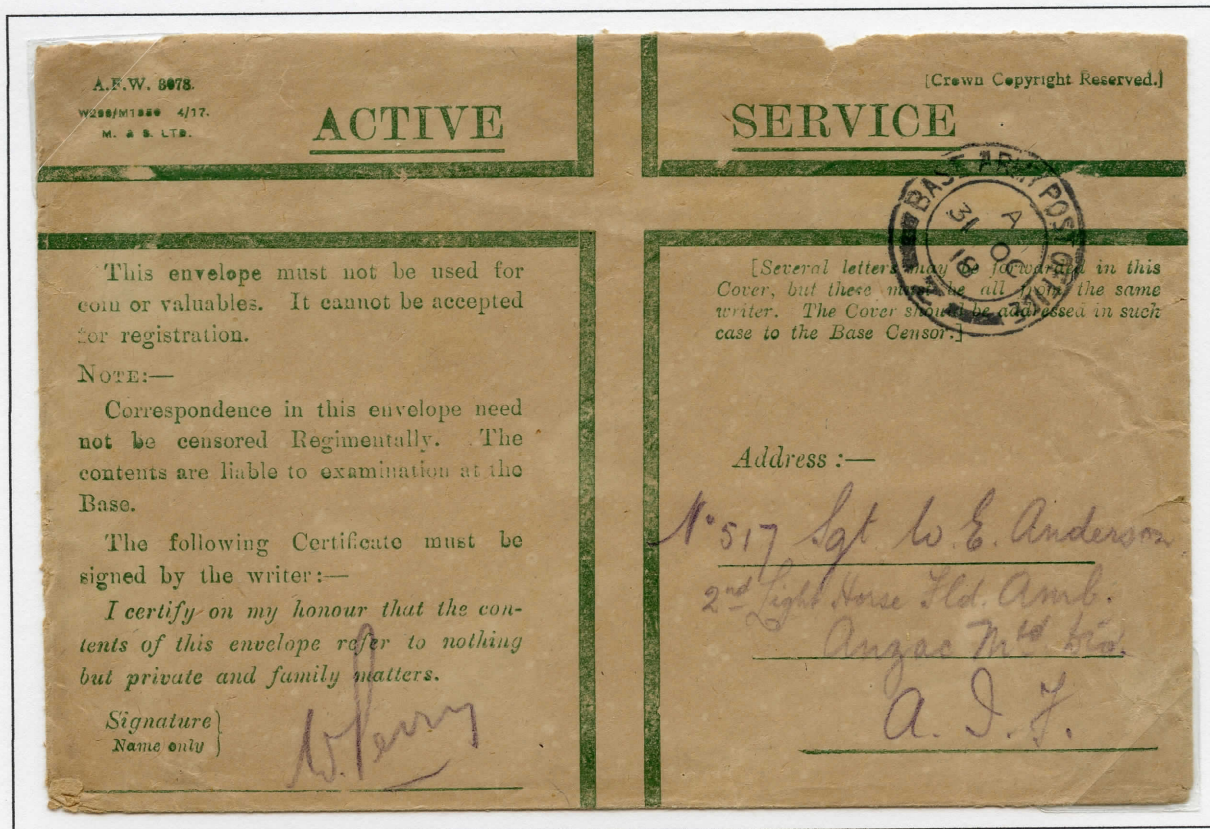 A.F.W. 3078.
W288/M1350 4/17.
M. & S. LTD.
[Crown Copyright Reserved.]
ACTIVE SERVICE
BASE ARMY POST OFFICE
A
31 OC
18
This envelope must not be used for
coin or valuables. It cannot be accepted
for registration.
NOTE:—
Correspondence in this envelope need
not be censored Regimentally. The
contents are liable to examination at the
Base.
The following Certificate must be
signed by the writer:—
I certify on my honour that the con-
tents of this envelope refer to nothing
but private and family matters.
Signature
Name only
W. Perry
[Several letters may be forwarded in this
Cover, but these must be all from the same
writer. The Cover should be addressed in such
case to the Base Censor.]
Address :—
No 517 Sgt W. E. Anderson
2nd Light Horse Fld. Amb.
Anzac Mtd Div.
A. I. F.